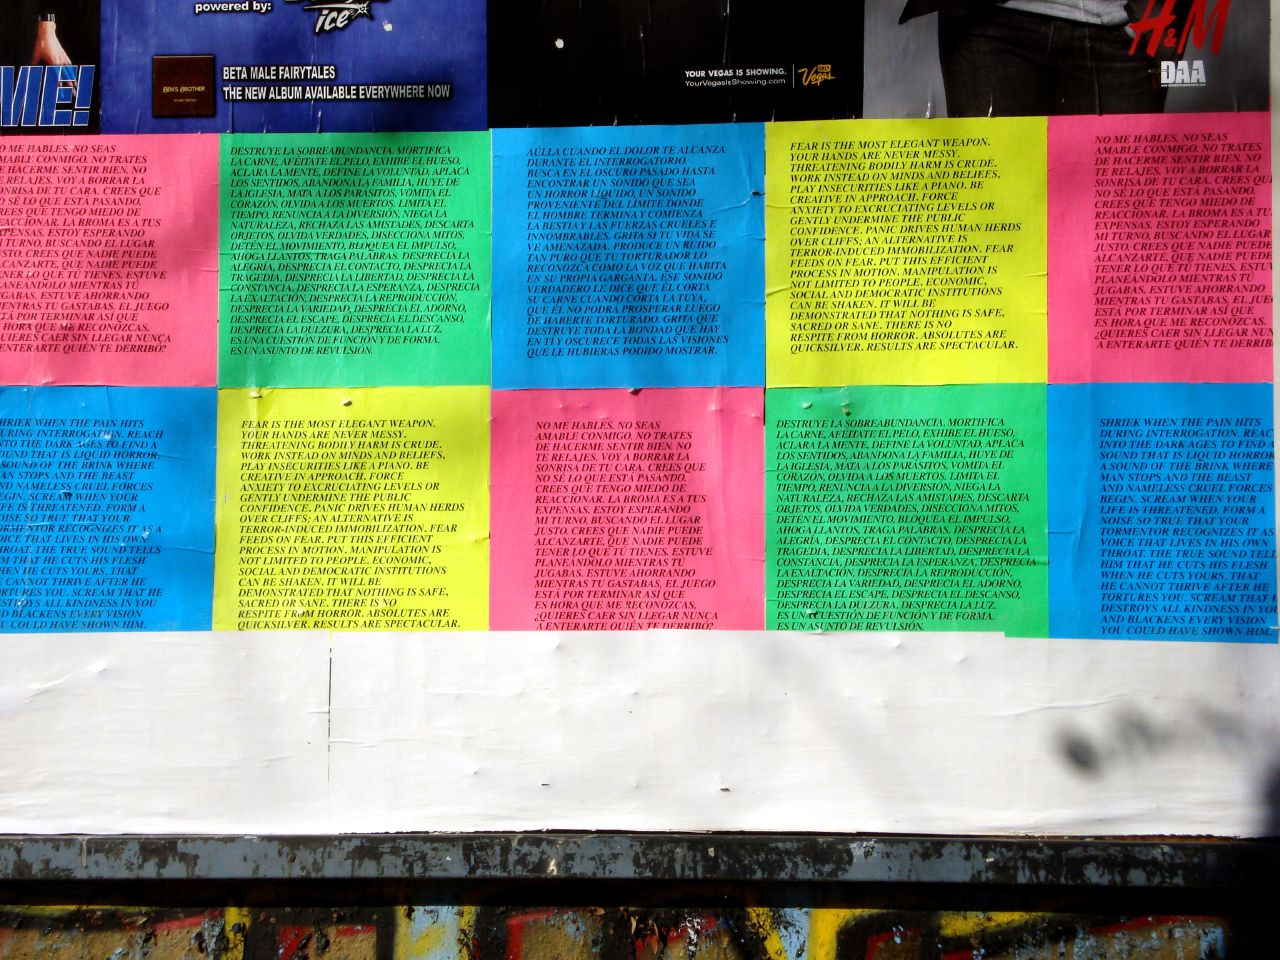 powered by:
ice
ME!
BEN'S BROTHER
BETA MALE FAIRYTALES
THE NEW ALBUM AVAILABLE EVERYWHERE NOW
YOUR VEGAS IS SHOWING.
YourVegasIsShowing.com
ONLY
Vegas
H&M
DAA
NO ME HABLES. NO SEAS
AMABLE CONMIGO. NO TRATES
DE HACERME SENTIR BIEN. NO
RELAJES. VOY A BORRAR LA
SONRISA DE TU CARA. CREES QUE
NO SÉ LO QUE ESTÁ PASANDO.
CREES QUE TENGO MIEDO DE
REACCIONAR. LA BROMA ES A TUS
EXPENSAS. ESTOY ESPERANDO
MI TURNO, BUSCANDO EL LUGAR
JUSTO. CREES QUE NADIE PUEDE
ALCANZARTE, QUE NADIE PUEDE
TENER LO QUE TÚ TIENES. ESTUVE
PLANEÁNDOLO MIENTRAS TÚ
JUGABAS. ESTUVE AHORRANDO
MIENTRAS TÚ GASTABAS. EL JUEGO
ESTÁ POR TERMINAR ASÍ QUE
ES HORA QUE ME RECONOZCAS.
¿QUIERES CAER SIN LLEGAR NUNCA
A ENTERARTE QUIÉN TE DERRIBÓ?
DESTRUYE LA SOBREABUNDANCIA. MORTIFICA
LA CARNE, AFÉITATE EL PELO, EXHIBE EL HUESO,
ACLARA LA MENTE, DEFINE LA VOLUNTAD, APLACA
LOS SENTIDOS, ABANDONA LA FAMILIA, HUYE DE
LA IGLESIA, MATA A LOS PARÁSITOS, VOMITA EL
CORAZÓN, OLVIDA A LOS MUERTOS. LIMITA EL
TIEMPO, RENUNCIA A LA DIVERSIÓN, NIEGA LA
NATURALEZA, RECHAZA LAS AMISTADES, DESCARTA
OBJETOS, OLVIDA VERDADES, DISECCIONA MITOS,
DETÉN EL MOVIMIENTO, BLOQUEA EL IMPULSO,
AHOGA LLANTOS, TRAGA PALABRAS. DESPRECIA LA
ALEGRÍA, DESPRECIA EL CONTACTO, DESPRECIA LA
TRAGEDIA, DESPRECIA LA LIBERTAD, DESPRECIA LA
CONSTANCIA, DESPRECIA LA ESPERANZA, DESPRECIA
LA EXALTACIÓN, DESPRECIA LA REPRODUCCIÓN,
DESPRECIA LA VARIEDAD, DESPRECIA EL ADORNO,
DESPRECIA EL ESCAPE, DESPRECIA EL DESCANSO,
DESPRECIA LA DULZURA, DESPRECIA LA LUZ.
ES UNA CUESTIÓN DE FUNCIÓN Y DE FORMA.
ES UN ASUNTO DE REVULSIÓN.
AÚLLA CUANDO EL DOLOR TE ALCANZA
DURANTE EL INTERROGATORIO.
BUSCA EN EL OSCURO PASADO HASTA
ENCONTRAR UN SONIDO QUE SEA
UN HORROR LÍQUIDO, UN SONIDO
PROVENIENTE DEL LÍMITE DONDE
EL HOMBRE TERMINA Y COMIENZA
LA BESTIA Y LAS FUERZAS CRUELES E
INNOMBRABLES. GRITA SI TU VIDA SE
VE AMENAZADA. PRODUCE UN RUIDO
TAN PURO QUE TU TORTURADOR LO
RECONOZCA COMO LA VOZ QUE HABITA
EN SU PROPIA GARGANTA. ESE SONIDO
VERDADERO LE DICE QUE ÉL CORTA
SU CARNE CUANDO CORTA LA TUYA,
QUE ÉL NO PODRÁ PROSPERAR LUEGO
DE HABERTE TORTURADO. GRITA QUE
DESTRUYE TODA LA BONDAD QUE HAY
EN TI Y OSCURECE TODAS LAS VISIONES
QUE LE HUBIERAS PODIDO MOSTRAR.
FEAR IS THE MOST ELEGANT WEAPON.
YOUR HANDS ARE NEVER MESSY.
THREATENING BODILY HARM IS CRUDE.
WORK INSTEAD ON MINDS AND BELIEFS,
PLAY INSECURITIES LIKE A PIANO. BE
CREATIVE IN APPROACH. FORCE
ANXIETY TO EXCRUCIATING LEVELS OR
GENTLY UNDERMINE THE PUBLIC
CONFIDENCE. PANIC DRIVES HUMAN HERDS
OVER CLIFFS; AN ALTERNATIVE IS
TERROR-INDUCED IMMOBILIZATION. FEAR
FEEDS ON FEAR. PUT THIS EFFICIENT
PROCESS IN MOTION. MANIPULATION IS
NOT LIMITED TO PEOPLE. ECONOMIC,
SOCIAL AND DEMOCRATIC INSTITUTIONS
CAN BE SHAKEN. IT WILL BE
DEMONSTRATED THAT NOTHING IS SAFE,
SACRED OR SANE. THERE IS NO
RESPITE FROM HORROR. ABSOLUTES ARE
QUICKSILVER. RESULTS ARE SPECTACULAR.
NO ME HABLES. NO SEAS
AMABLE CONMIGO. NO TRATES
DE HACERME SENTIR BIEN. NO
TE RELAJES. VOY A BORRAR LA
SONRISA DE TU CARA. CREES QUE
NO SÉ LO QUE ESTÁ PASANDO.
CREES QUE TENGO MIEDO DE
REACCIONAR. LA BROMA ES A TUS
EXPENSAS. ESTOY ESPERANDO
MI TURNO, BUSCANDO EL LUGAR
JUSTO. CREES QUE NADIE PUEDE
ALCANZARTE, QUE NADIE PUEDE
TENER LO QUE TÚ TIENES. ESTUVE
PLANEÁNDOLO MIENTRAS TÚ
JUGABAS. ESTUVE AHORRANDO
MIENTRAS TÚ GASTABAS. EL JUEGO
ESTÁ POR TERMINAR ASÍ QUE
ES HORA QUE ME RECONOZCAS.
¿QUIERES CAER SIN LLEGAR NUNCA
A ENTERARTE QUIÉN TE DERRIBÓ?
SHRIEK WHEN THE PAIN HITS
DURING INTERROGATION. REACH
INTO THE DARK AGES TO FIND A
SOUND THAT IS LIQUID HORROR,
A SOUND OF THE BRINK WHERE
MAN STOPS AND THE BEAST
AND NAMELESS CRUEL FORCES
BEGIN. SCREAM WHEN YOUR
LIFE IS THREATENED. FORM A
NOISE SO TRUE THAT YOUR
TORMENTOR RECOGNIZES IT AS A
VOICE THAT LIVES IN HIS OWN
THROAT. THE TRUE SOUND TELLS
HIM THAT HE CUTS HIS FLESH
WHEN HE CUTS YOURS, THAT
HE CANNOT THRIVE AFTER HE
TORTURES YOU. SCREAM THAT HE
DESTROYS ALL KINDNESS IN YOU
AND BLACKENS EVERY VISION
YOU COULD HAVE SHOWN HIM.
FEAR IS THE MOST ELEGANT WEAPON.
YOUR HANDS ARE NEVER MESSY.
THREATENING BODILY HARM IS CRUDE.
WORK INSTEAD ON MINDS AND BELIEFS,
PLAY INSECURITIES LIKE A PIANO. BE
CREATIVE IN APPROACH. FORCE
ANXIETY TO EXCRUCIATING LEVELS OR
GENTLY UNDERMINE THE PUBLIC
CONFIDENCE. PANIC DRIVES HUMAN HERDS
OVER CLIFFS; AN ALTERNATIVE IS
TERROR-INDUCED IMMOBILIZATION. FEAR
FEEDS ON FEAR. PUT THIS EFFICIENT
PROCESS IN MOTION. MANIPULATION IS
NOT LIMITED TO PEOPLE. ECONOMIC,
SOCIAL AND DEMOCRATIC INSTITUTIONS
CAN BE SHAKEN. IT WILL BE
DEMONSTRATED THAT NOTHING IS SAFE,
SACRED OR SANE. THERE IS NO
RESPITE FROM HORROR. ABSOLUTES ARE
QUICKSILVER. RESULTS ARE SPECTACULAR.
NO ME HABLES. NO SEAS
AMABLE CONMIGO. NO TRATES
DE HACERME SENTIR BIEN. NO
TE RELAJES. VOY A BORRAR LA
SONRISA DE TU CARA. CREES QUE
NO SÉ LO QUE ESTÁ PASANDO.
CREES QUE TENGO MIEDO DE
REACCIONAR. LA BROMA ES A TUS
EXPENSAS. ESTOY ESPERANDO
MI TURNO, BUSCANDO EL LUGAR
JUSTO. CREES QUE NADIE PUEDE
ALCANZARTE, QUE NADIE PUEDE
TENER LO QUE TÚ TIENES. ESTUVE
PLANEÁNDOLO MIENTRAS TÚ
JUGABAS. ESTUVE AHORRANDO
MIENTRAS TÚ GASTABAS. EL JUEGO
ESTÁ POR TERMINAR ASÍ QUE
ES HORA QUE ME RECONOZCAS.
¿QUIERES CAER SIN LLEGAR NUNCA
A ENTERARTE QUIÉN TE DERRIBÓ?
DESTRUYE LA SOBREABUNDANCIA. MORTIFICA
LA CARNE, AFÉITATE EL PELO, EXHIBE EL HUESO,
ACLARA LA MENTE, DEFINE LA VOLUNTAD, APLACA
LOS SENTIDOS, ABANDONA LA FAMILIA, HUYE DE
LA IGLESIA, MATA A LOS PARÁSITOS, VOMITA EL
CORAZÓN, OLVIDA A LOS MUERTOS. LIMITA EL
TIEMPO, RENUNCIA A LA DIVERSIÓN, NIEGA LA
NATURALEZA, RECHAZA LAS AMISTADES, DESCARTA
OBJETOS, OLVIDA VERDADES, DISECCIONA MITOS,
DETÉN EL MOVIMIENTO, BLOQUEA EL IMPULSO,
AHOGA LLANTOS, TRAGA PALABRAS. DESPRECIA LA
ALEGRÍA, DESPRECIA EL CONTACTO, DESPRECIA LA
TRAGEDIA, DESPRECIA LA LIBERTAD, DESPRECIA LA
CONSTANCIA, DESPRECIA LA ESPERANZA, DESPRECIA
LA EXALTACIÓN, DESPRECIA LA REPRODUCCIÓN,
DESPRECIA LA VARIEDAD, DESPRECIA EL ADORNO,
DESPRECIA EL ESCAPE, DESPRECIA EL DESCANSO,
DESPRECIA LA DULZURA, DESPRECIA LA LUZ.
ES UNA CUESTIÓN DE FUNCIÓN Y DE FORMA.
ES UN ASUNTO DE REVULSIÓN.
SHRIEK WHEN THE PAIN HITS
DURING INTERROGATION. REACH
INTO THE DARK AGES TO FIND A
SOUND THAT IS LIQUID HORROR,
A SOUND OF THE BRINK WHERE
MAN STOPS AND THE BEAST
AND NAMELESS CRUEL FORCES
BEGIN. SCREAM WHEN YOUR
LIFE IS THREATENED. FORM A
NOISE SO TRUE THAT YOUR
TORMENTOR RECOGNIZES IT AS
VOICE THAT LIVES IN HIS OWN
THROAT. THE TRUE SOUND TELLS
HIM THAT HE CUTS HIS FLESH
WHEN HE CUTS YOURS, THAT
HE CANNOT THRIVE AFTER HE
TORTURES YOU. SCREAM THAT
DESTROYS ALL KINDNESS IN YOU
AND BLACKENS EVERY VISION
YOU COULD HAVE SHOWN HIM.